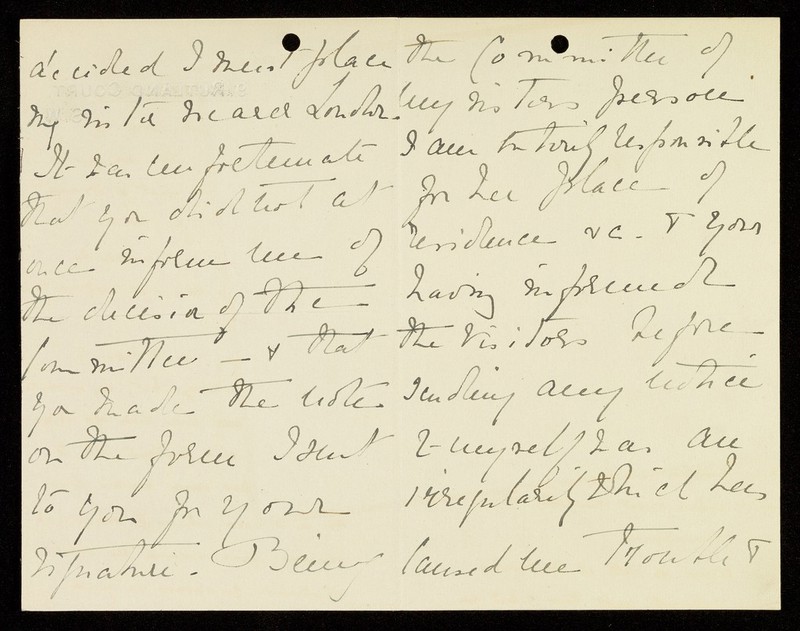 decided I must place
my sister nearer London.
It was unfortunate
that you did not at
once inform me of
the decision of the
Committee - & that
you made the note
on the form I sent
to you for your
signature. Being
the Committee of
my sisters person
I am entirely responsible
for her place of
residence &c. & your
having informed
the visitors before
sending any notice
to myself was an
irregularity which has
caused me trouble &